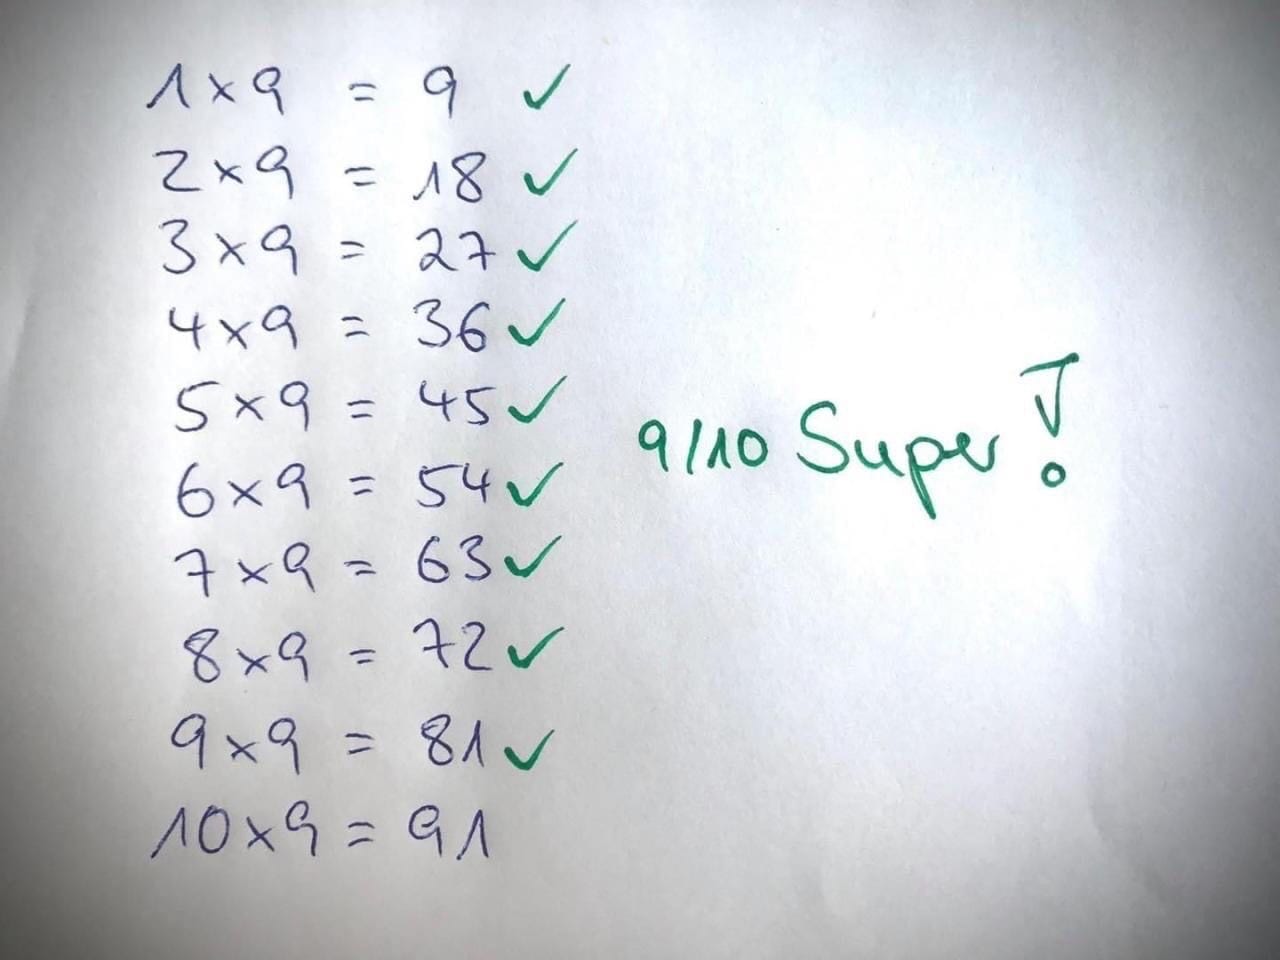 1 x 9 = 9 ✓
2 x 9 = 18 ✓
3 x 9 = 27 ✓
4 x 9 = 36 ✓
5 x 9 = 45 ✓
6 x 9 = 54 ✓
7 x 9 = 63 ✓
8 x 9 = 72 ✓
9 x 9 = 81 ✓
10 x 9 = 91
9/10 Super!